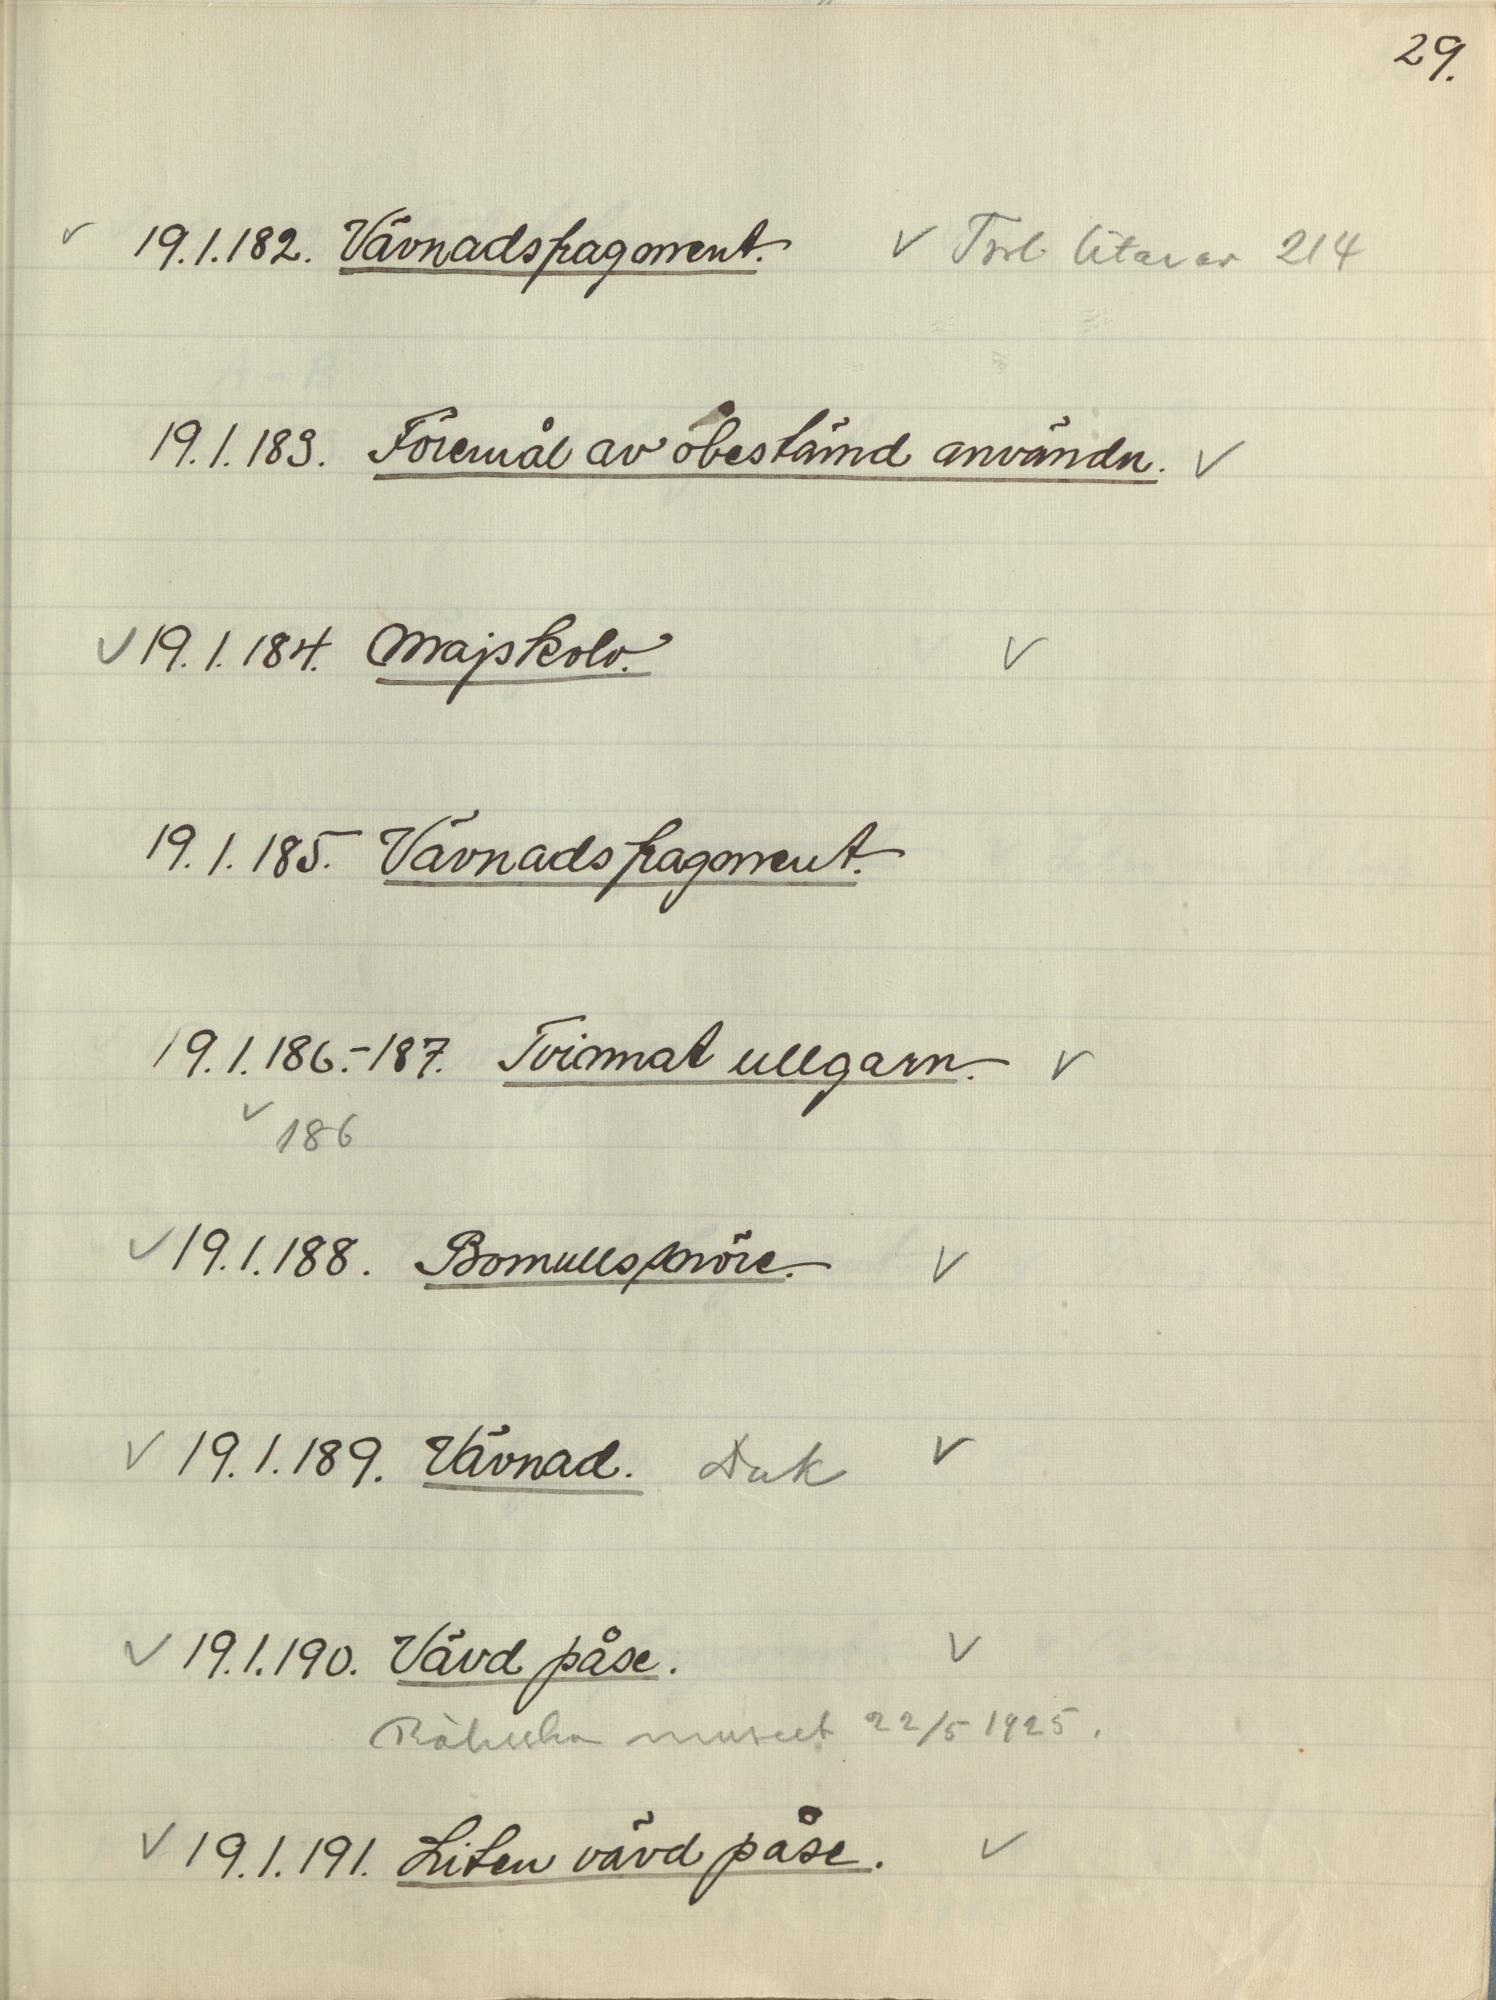 29.
✓ 19.1.182. Vävnadsfragment. ✓ 214
19.1.183. Föremål av obestämd användn. ✓
✓ 19.1.184. Majskolv. ✓
19.1.185. Vävnadsfragment.
19.1.186.-187. Tvinnat ullgarn. ✓
✓ 186
✓ 19.1.188. Bomullssnöre. ✓
✓ 19.1.189. Vävnad. Duk ✓
✓ 19.1.190. Vävd påse. ✓
Röhsska museet 22/5 1925.
✓ 19.1.191. Liten vävd påse. ✓